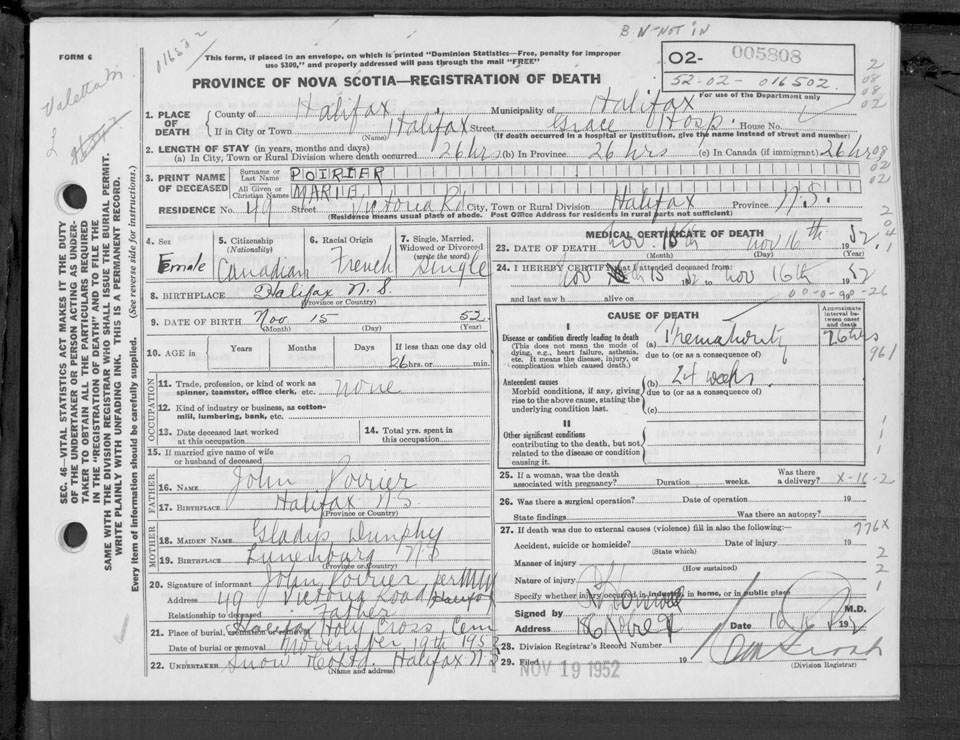 B N - NOT IN
FORM 6
This form, if placed in an envelope, on which is printed "Dominion Statistics—Free, penalty for improper
use $300," and properly addressed will pass through the mail "FREE"
02- 005808
52-02- 016502
For use of the Department only
PROVINCE OF NOVA SCOTIA—REGISTRATION OF DEATH
Valetta M.
1. PLACE OF DEATH
County of Halifax Municipality of Halifax
If in City or Town Halifax Street Grace Hosp. House No.
(Name) (If death occurred in a hospital or institution, give the name instead of street and number)
2. LENGTH OF STAY (in years, months and days)
(a) In City, Town or Rural Division where death occurred 26 hrs (b) In Province 26 hrs (c) In Canada (if immigrant) 26 hrs
3. PRINT NAME OF DECEASED
Surname or Last Name POIRIER
All Given or Christian Names MARIE
RESIDENCE No. 49 Street Victoria Rd City, Town or Rural Division Halifax Province N.S.
(Residence means usual place of abode. Post Office Address for residents in rural parts not sufficient)
4. Sex Female
5. Citizenship (Nationality) Canadian
6. Racial Origin French
7. Single, Married, Widowed or Divorced (write the word) Single
8. BIRTHPLACE Halifax N.S.
(Province or Country)
9. DATE OF BIRTH Nov 15 52
(Month) (Day) (Year)
10. AGE in Years Months Days If less than one day old
26 hrs. or min.
OCCUPATION
11. Trade, profession, or kind of work as spinner, teamster, office clerk, etc. none
12. Kind of industry or business, as cotton-mill, lumbering, bank, etc.
13. Date deceased last worked at this occupation
14. Total yrs. spent in this occupation
15. If married give name of wife or husband of deceased
FATHER
16. NAME John Poirier
17. BIRTHPLACE Halifax N S
(Province or Country)
MOTHER
18. MAIDEN NAME Gladys Dunphy
19. BIRTHPLACE Lunenburg N S
(Province or Country)
20. Signature of informant John Poirier per
Address 49 Victoria Road Halifax
Relationship to deceased Father
21. Place of burial, cremation or removal Halifax Holy Cross Cem
Date of burial or removal November 19th 1952
22. UNDERTAKER Snow Halifax N S
(Name and address)
MEDICAL CERTIFICATE OF DEATH
23. DATE OF DEATH Nov 16th 1952
(Month) (Day) (Year)
24. I HEREBY CERTIFY that I attended deceased from:
Nov 15 1952 to Nov 16th 1952
and last saw h alive on
CAUSE OF DEATH
Approximate interval between onset and death
I
Disease or condition directly leading to death
(This does not mean the mode of dying, e.g., heart failure, asthenia, etc. It means the disease, injury, or complication which caused death.)
(a) Prematurity 26 hrs
due to (or as a consequence of)
Antecedent causes
Morbid conditions, if any, giving rise to the above cause, stating the underlying condition last.
(b) 24 weeks.
due to (or as a consequence of)
(c)
II
Other significant conditions
contributing to the death, but not related to the disease or condition causing it.
25. If a woman, was the death associated with pregnancy? Duration weeks. Was there a delivery? X-16-2
26. Was there a surgical operation? Date of operation 19
State findings Was there an autopsy?
27. If death was due to external causes (violence) fill in also the following:—
776X
Accident, suicide or homicide? Date of injury 19
(State which)
Manner of injury
(How sustained)
Nature of injury
Specify whether injury occurred in industry, in home, or in public place
Signed by M.D.
Address Date 16 1952
28. Division Registrar's Record Number
29. Filed NOV 19 1952 19
(Division Registrar)
SEC. 46—VITAL STATISTICS ACT MAKES IT THE DUTY
OF THE UNDERTAKER OR PERSON ACTING AS UNDERTAKER
TO OBTAIN ALL THE PARTICULARS REQUIRED
IN THE "REGISTRATION OF DEATH" AND TO FILE THE
SAME WITH THE DIVISION REGISTRAR WHO SHALL ISSUE THE BURIAL PERMIT.
WRITE PLAINLY WITH UNFADING INK. THIS IS A PERMANENT RECORD.
Every item of information should be carefully supplied. (See reverse side for instructions.)